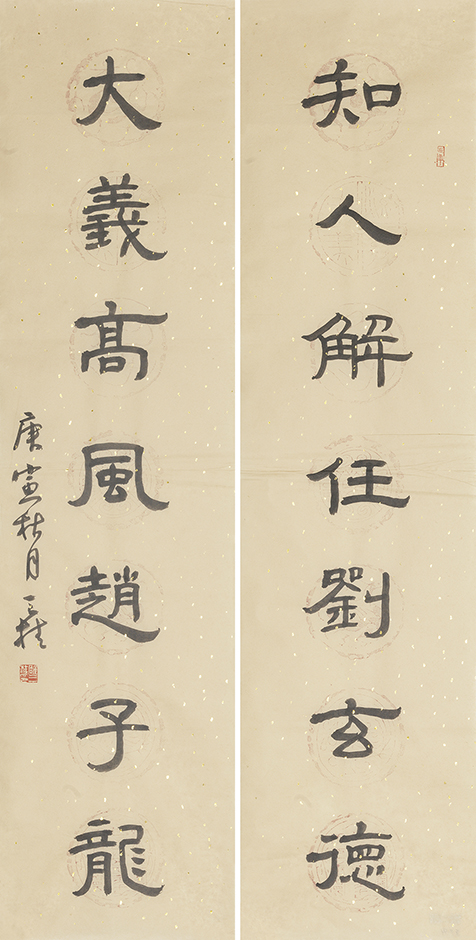 知人解任劉玄德
大義高風趙子龍
庚寅秋月